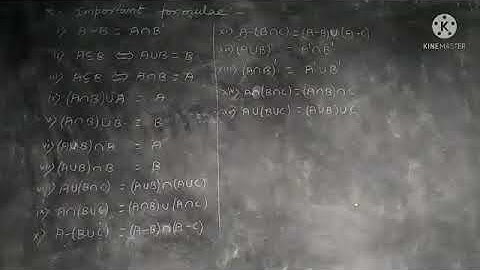 Important formulae
i) A-B = A∩B'
ii) A⊆B ⇔ A∪B = B
iii) A⊆B ⇔ A∩B = A
iv) (A∩B)∪A = A
v) (A∩B)∪B = B
vi) (A∪B)∩A = A
vii) (A∪B)∩B = B
A∪(B∩C) = (A∪B)∩(A∪C)
A∩(B∪C) = (A∩B)∪(A∩C)
x) A-(B∪C) = (A-B)∩(A-C)
xi) A-(B∩C) = (A-B)∪(A-C)
xii) (A∪B)' = A'∩B'
xiii) (A∩B)' = A'∪B'
xiv) A∩(B∩C) = (A∩B)∩C
xv) A∪(B∪C) = (A∪B)∪C
KINEMASTER